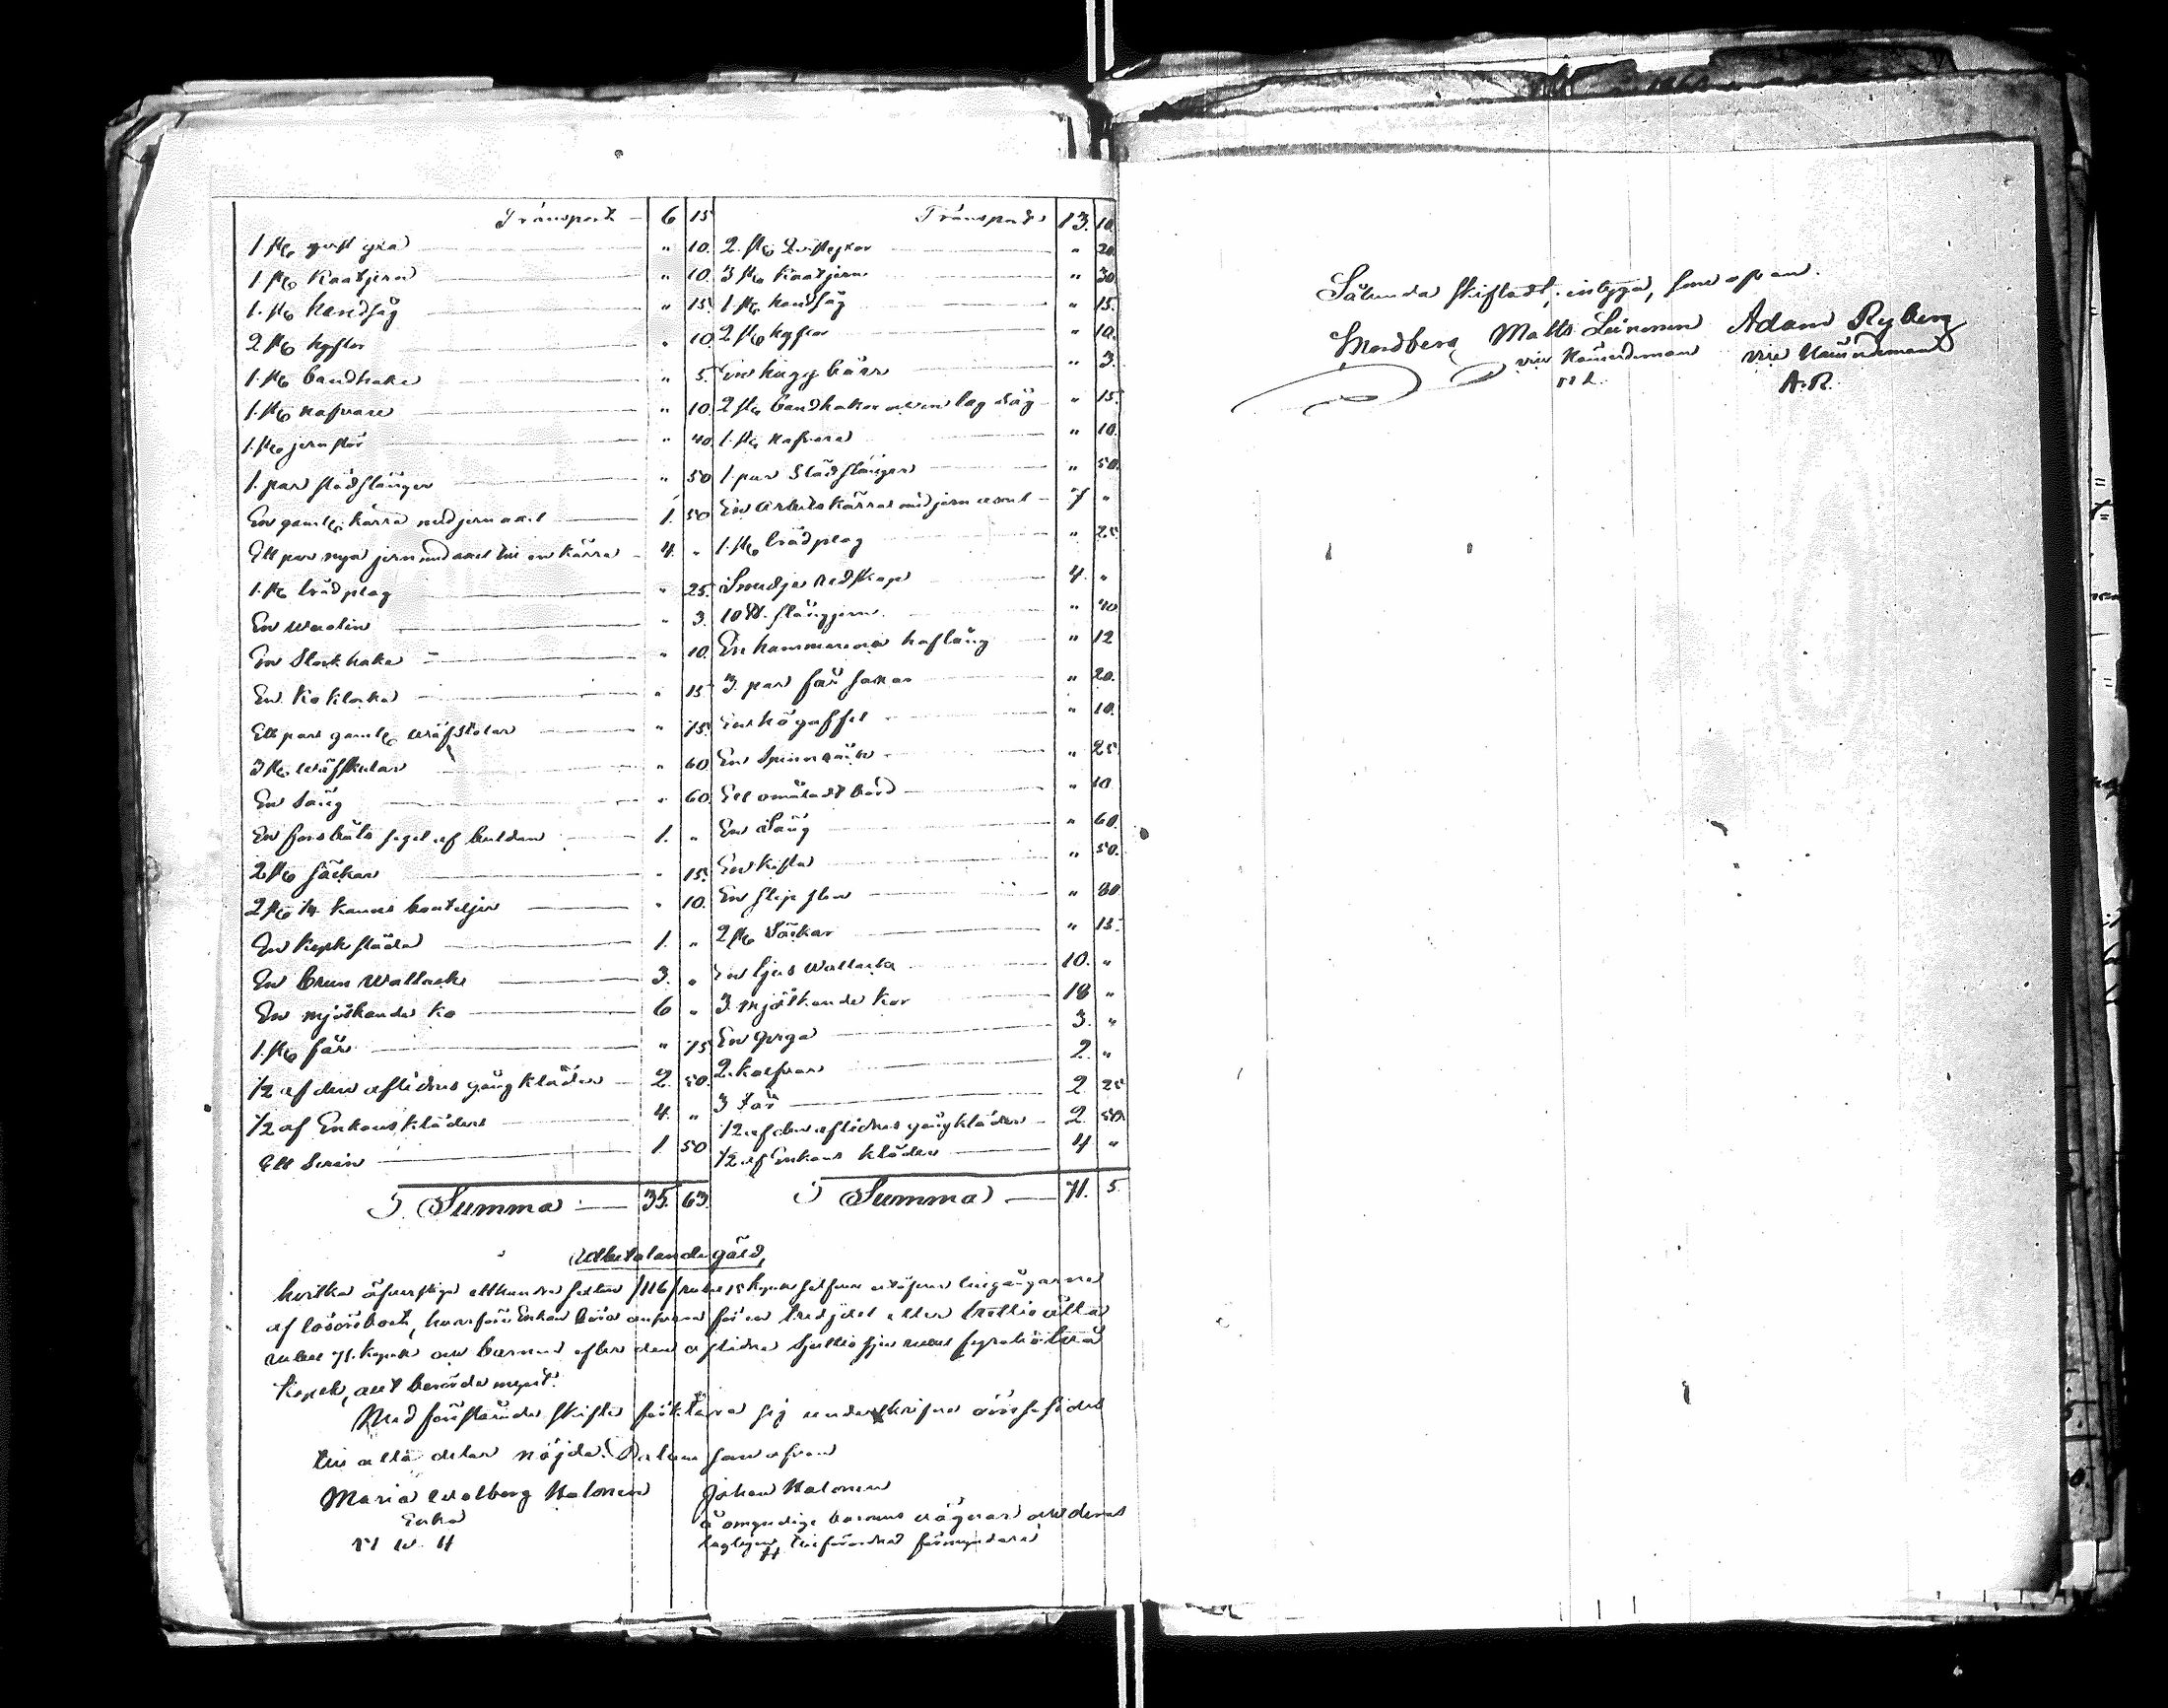 Transport — 6 15
1 st: 
" 10.
1 st: Kaatjern " 10.
1. st: handsåg " 15.
2 st: hyflar " 10
1. st: bandhake " 5.
1. st: nafvare " 10.
1. st: jernstör " 40
1. par slädstänger " 50
En gamle kärra med jernaxel 1. 50
Ett par nya jern med axel till en kärra 4. "
1. st: trädplog " 25.
En " 3.
En Stockhake " 10.
En Koklocka " 15
Ett par gamle " 75.
3 st: wäfskedar " 60
En Säng " 60.
En segel af buldan 1. "
2 st: säckar " 15.
2 st: 1/4 kanns bouteljer " 10.
En släda 1. "
En brun Wallack 3. "
En mjölkande Ko 6 "
1. st: får " 75
1/2 af den aflidnes gångkläder 2. 50.
1/2 af Enkans kläder 4. "
Ett Scrin 1 50
Summa 35. 63.
Transport 13. 10
2. st: " 20.
3 st: Kaatjern " 30
1 st: handsåg " 15.
2 st: hyflar " 10.
En " 3.
2 st: bandhakar och en såg " 15.
1 st: nafvare " 10.
1. par Slädstänger " 50.
En Arbetskärra med jernaxel 7 "
1. st: trädplog " 25
Smedje redskap 4. "
10 ℔. stångjern " 40
En hammare " 12
3. par får saxar " 20.
En högaffel " 10.
En Spinnråck " 25
Ett omåladt bord " 10
En Säng " 60.
En kista " 50.
En slipsten " 80
2 st: Säckar " 15.
En ljus Wallack 10. "
3. mjölkande Kor 18 "
En qviga 3. "
2. kalfvar 2. "
3 Får 2. 25
1/2 af den aflidnes gångkläder 2. 50.
1/2 af Enkans kläder 4 "
Summa 71. 5.
Utbetalande gäld,
hvilka öfverstiga etthundra sexton /116/ rubel 15 kopek silfver utöfver tillgångarne
af lösöreboet, hvarföre Enkan bör ansvara för en tredjedel eller trettioåtta
rubel 71. kopek och barnen efter den aflidne sjuttiosju rubel fyratiotvå
kopek, allt berörde mynt.
Med förestående skifte förklara sig underskrifne arfvingar
till alla delar nöjda. Datum som ofvan
Maria Walborg Halonen
Enka
M W. H
Johan Halonen
å omyndige barnens vägnar och deras
lagligen tillförordnad förmyndare
Sålunda skiftadt, intyga, som ofvan.
Nordberg Matts Leinonen Adam Ryberg
vice Nämndeman vice Nämndeman
M L. A. R.